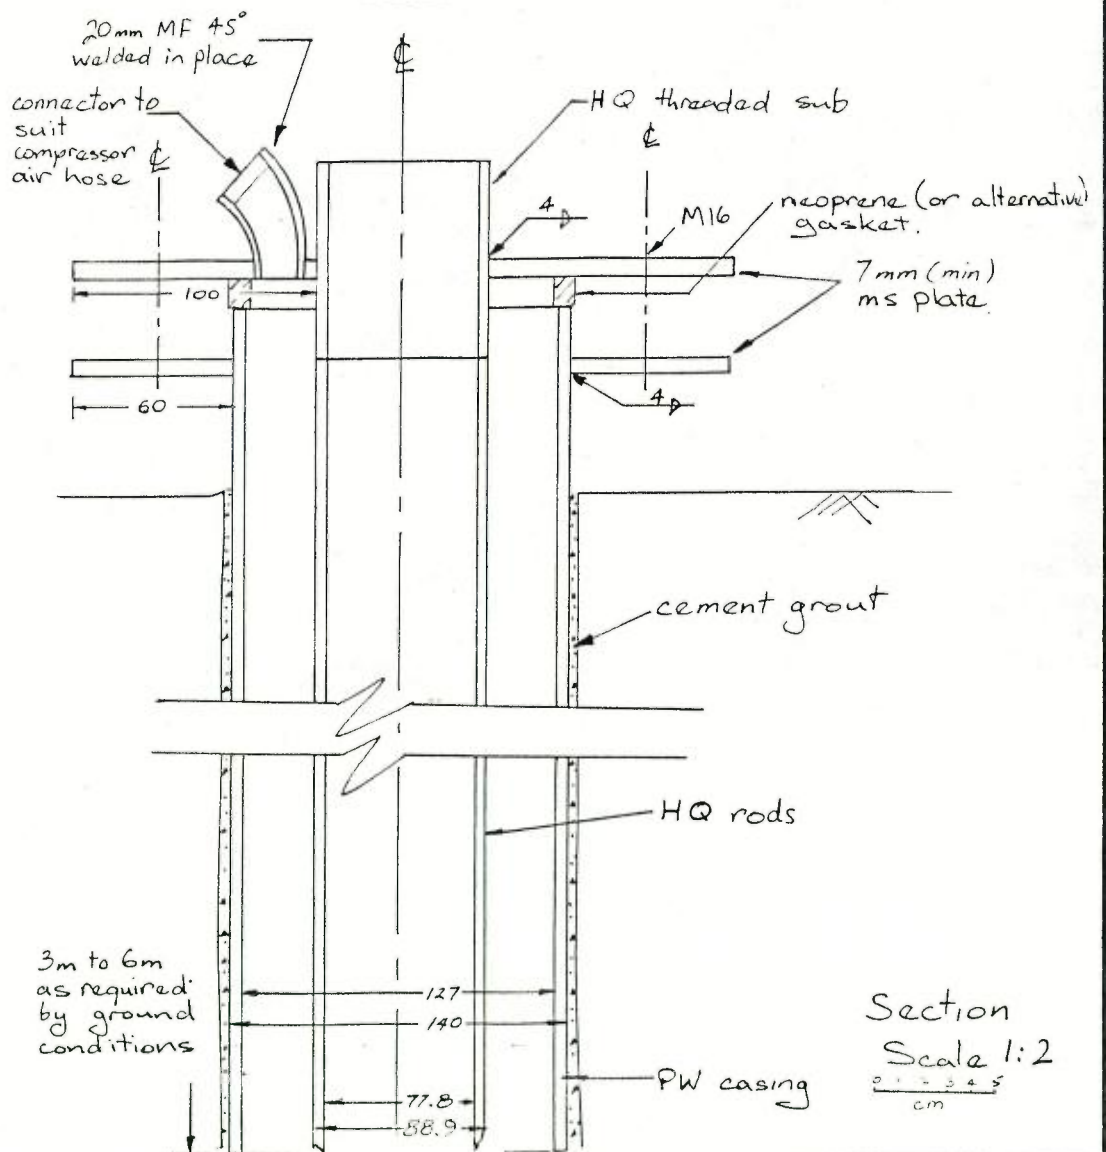 20mm MF 45°
welded in place
℄
connector to
suit
compressor
air hose
℄
HQ threaded sub
℄
4
M16
neoprene (or alternative)
gasket.
7mm (min)
ms plate.
100
60
4
cement grout
HQ rods
3m to 6m
as required
by ground
conditions
127
140
77.8
88.9
PW casing
Section
Scale 1:2
0 1 2 3 4 5
cm